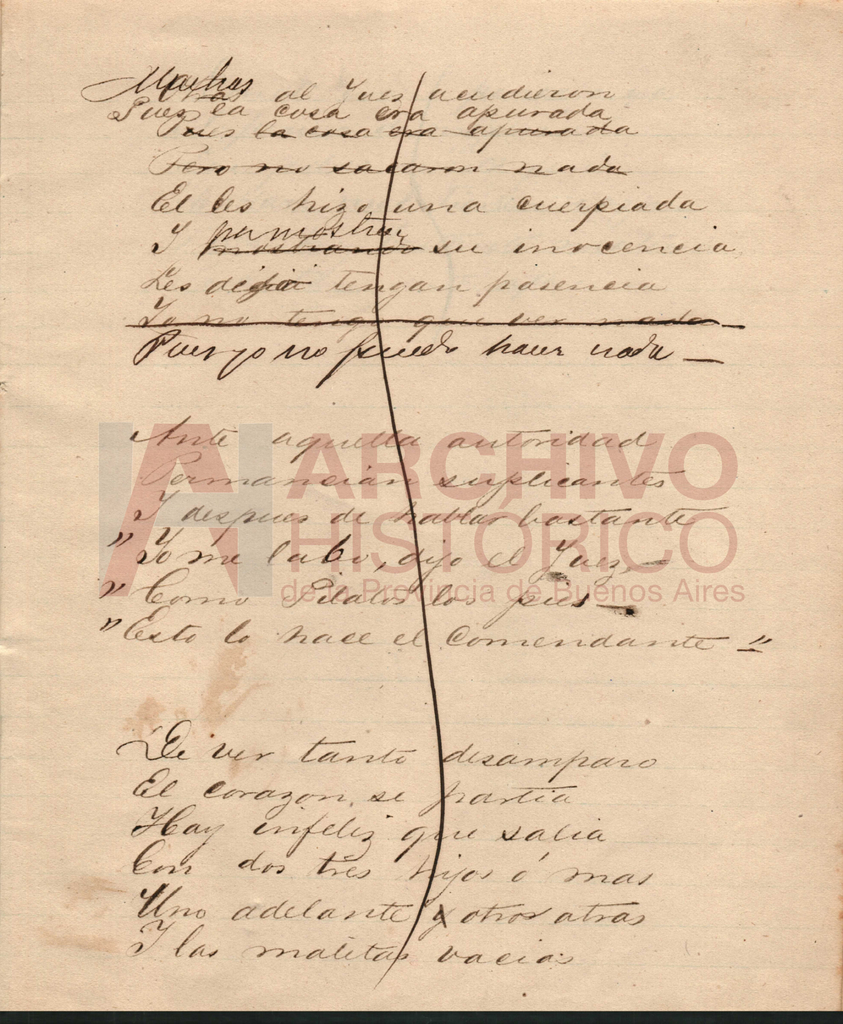 Muchas al Juez acudieron
Pues la cosa era apurada
ues la cosa era apurada
Pero no sacaron nada
El les hizo una cuerpiada
I por mostrar
mostrando su inocencia
Les dijia tengan pasencia
Yo no tengo que ver nada
Pues yo no puedo hacer nada
Ante aquella autoridad
Permanecian suplicantes
I despues de hablar bastante
"Yo me labo, dijo el Juez,
"Como Pilatos los pies
"Esto lo hace el Comendante"
De ver tanto desamparo
El corazon se partia
Hay infeliz que salia
Con dos tres hijos ó mas
Uno adelante y otros atras
I las malitas vacias
ARCHIVO
HISTÓRICO
de la Provincia de Buenos Aires